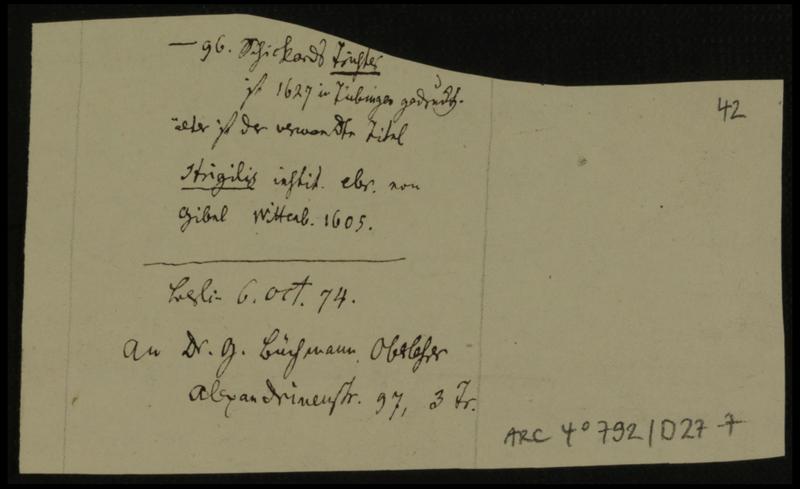 — 96. Schickards Trichter
ist 1627 in Tübingen gedruckt.
älter ist der verwandte Titel
Strigilis instit. ebr. von
Gibel Wittenb. 1605.
Berlin 6. oct. 74.
An Dr. G. Büchmann, Oberlehrer
Alexandrinenstr. 97, 3 Tr.
42
ARC 4° 792/D27-7